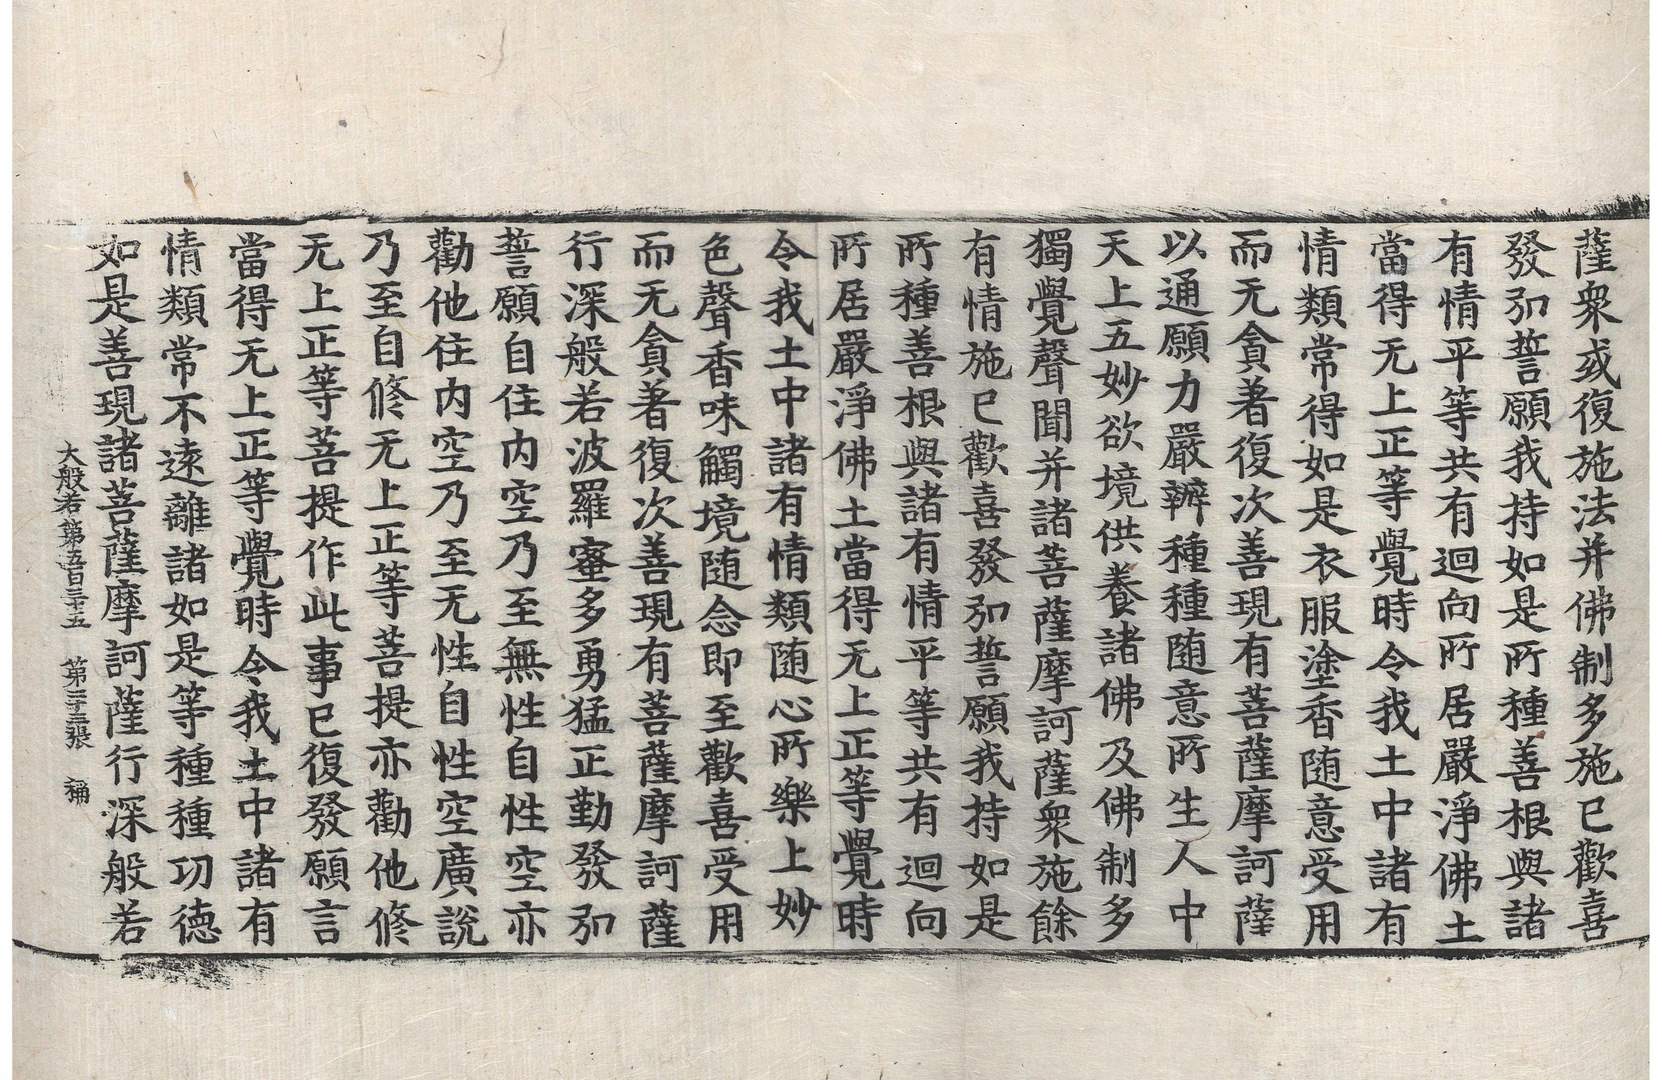 薩衆或復施法并佛制多施已歡喜
發弘誓願我持如是所種善根與諸
有情平等共有迴向所居嚴淨佛土
當得无上正等覺時令我土中諸有
情類常得如是衣服塗香随意受用
而无貪著復次善現有菩薩摩訶薩
以通願力嚴辦種種随意所生人中
天上五妙欲境供養諸佛及佛制多
獨覺聲聞并諸菩薩摩訶薩衆施餘
有情施已歡喜發弘誓願我持如是
所種善根與諸有情平等共有迴向
所居嚴淨佛土當得无上正等覺時
令我土中諸有情類随心所樂上妙
色聲香味觸境随念即至歡喜受用
而无貪著復次善現有菩薩摩訶薩
行深般若波羅蜜多勇猛正勤發弘
誓願自住内空乃至無性自性空亦
勸他住内空乃至无性自性空廣說
乃至自修无上正等菩提亦勸他修
无上正等菩提作此事已復發願言
當得无上正等覺時令我土中諸有
情類常不遠離諸如是等種種功德
如是善現諸菩薩摩訶薩行深般若
大般若第五百三十五 第二十二張 稱